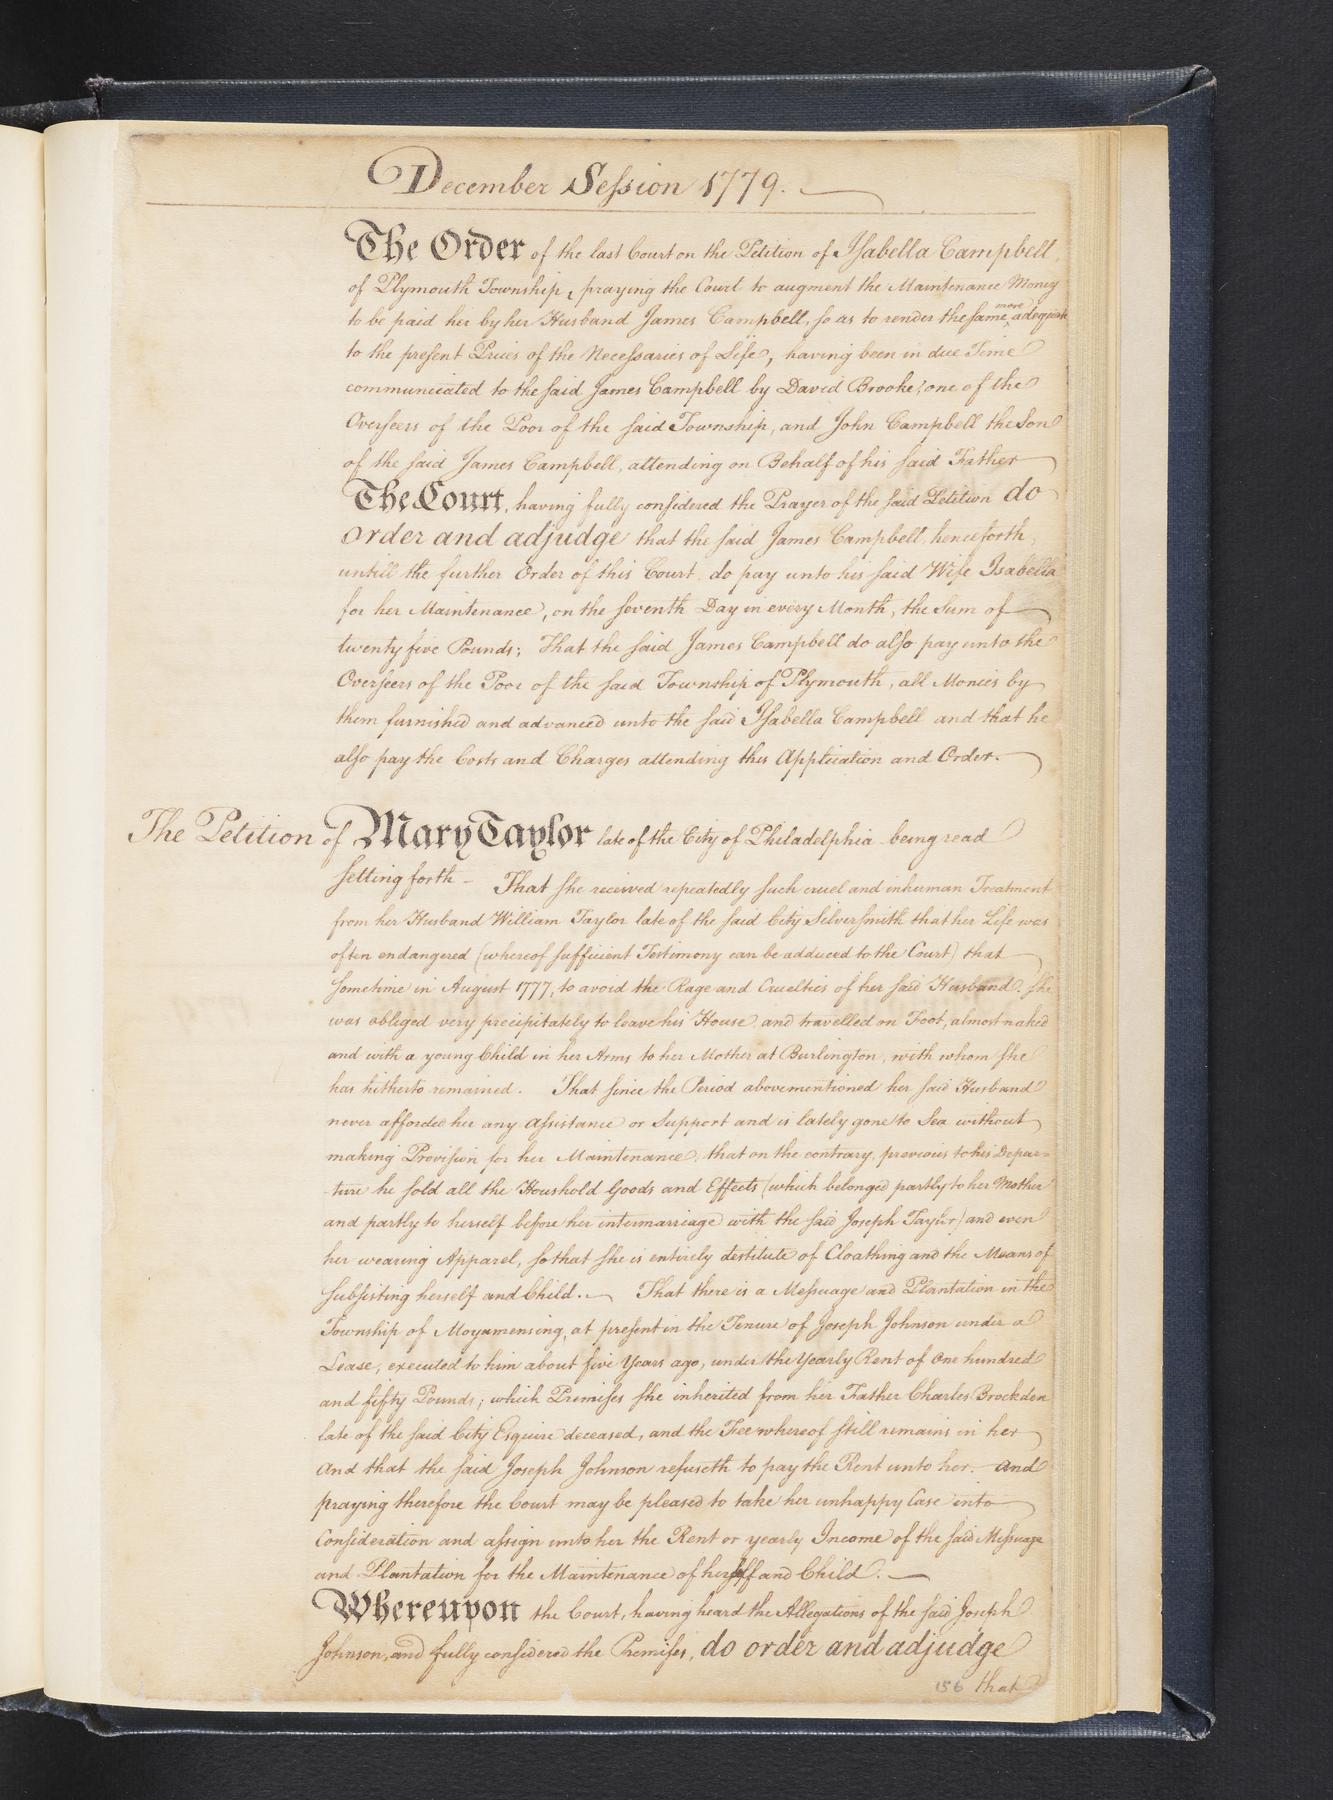 December Session 1779.
The Order of the last Court on the Petition of Isabella Campbell,
of Plymouth Township, praying the Court to augment the Maintenance Money
to be paid her by her Husband James Campbell, so as to render the same more adequate
to the present Prices of the Necessaries of Life, having been in due Time
communicated to the said James Campbell by David Brooke, one of the
Overseers of the Poor of the said Township, and John Campbell the Son
of the said James Campbell, attending on Behalf of his said Father
The Court, having fully considered the Prayer of the said Petition do
order and adjudge that the said James Campbell, henceforth,
untill the further Order of this Court, do pay unto his said Wife Isabella
for her Maintenance, on the seventh Day in every Month, the Sum of
twenty five Pounds; That the said James Campbell do also pay unto the
Overseers of the Poor of the said Township of Plymouth, all Monies by
them furnished and advanced unto the said Isabella Campbell and that he
also pay the Costs and Charges attending this Application and Order.
The Petition of Mary Taylor late of the City of Philadelphia being read
setting forth - That she received repeatedly such cruel and inhuman Treatment
from her Husband William Taylor late of the said City Silversmith that her Life was
often endangered (whereof sufficient Testimony can be adduced to the Court) that
sometime in August 1777, to avoid the Rage and Cruelties of her said Husband, she
was obliged very precipitately to leave his House and travelled on Foot, almost naked
and with a young Child in her Arms to her Mother at Burlington, with whom she
has hitherto remained. That since the Period abovementioned her said Husband
never afforded her any Assistance or Support and is lately gone to Sea without
making Provision for her Maintenance; that on the contrary, previous to his Depar-
ture he sold all the Houshold Goods and Effects (which belonged partly to her Mother
and partly to herself before her intermarriage with the said Joseph Taylor) and even
her wearing Apparel, so that she is entirely destitute of Cloathing and the Means of
subsisting herself and Child. - That there is a Messuage and Plantation in the
Township of Moyamensing, at present in the Tenure of Joseph Johnson under a
Lease, executed to him about five Years ago, under the Yearly Rent of One hundred
and fifty Pounds; which Premises she inherited from her Father Charles Brockden
late of the said City Esquire deceased, and the Fee whereof still remains in her
And that the said Joseph Johnson refuseth to pay the Rent unto her. And
praying therefore the Court may be pleased to take her unhappy Case into
Consideration and assign unto her the Rent or yearly Income of the said Messuage
and Plantation for the Maintenance of herself and Child. -
Whereupon the Court, having heard the Allegations of the said Joseph
Johnson, and fully considered the Premises, do order and adjudge
156 that